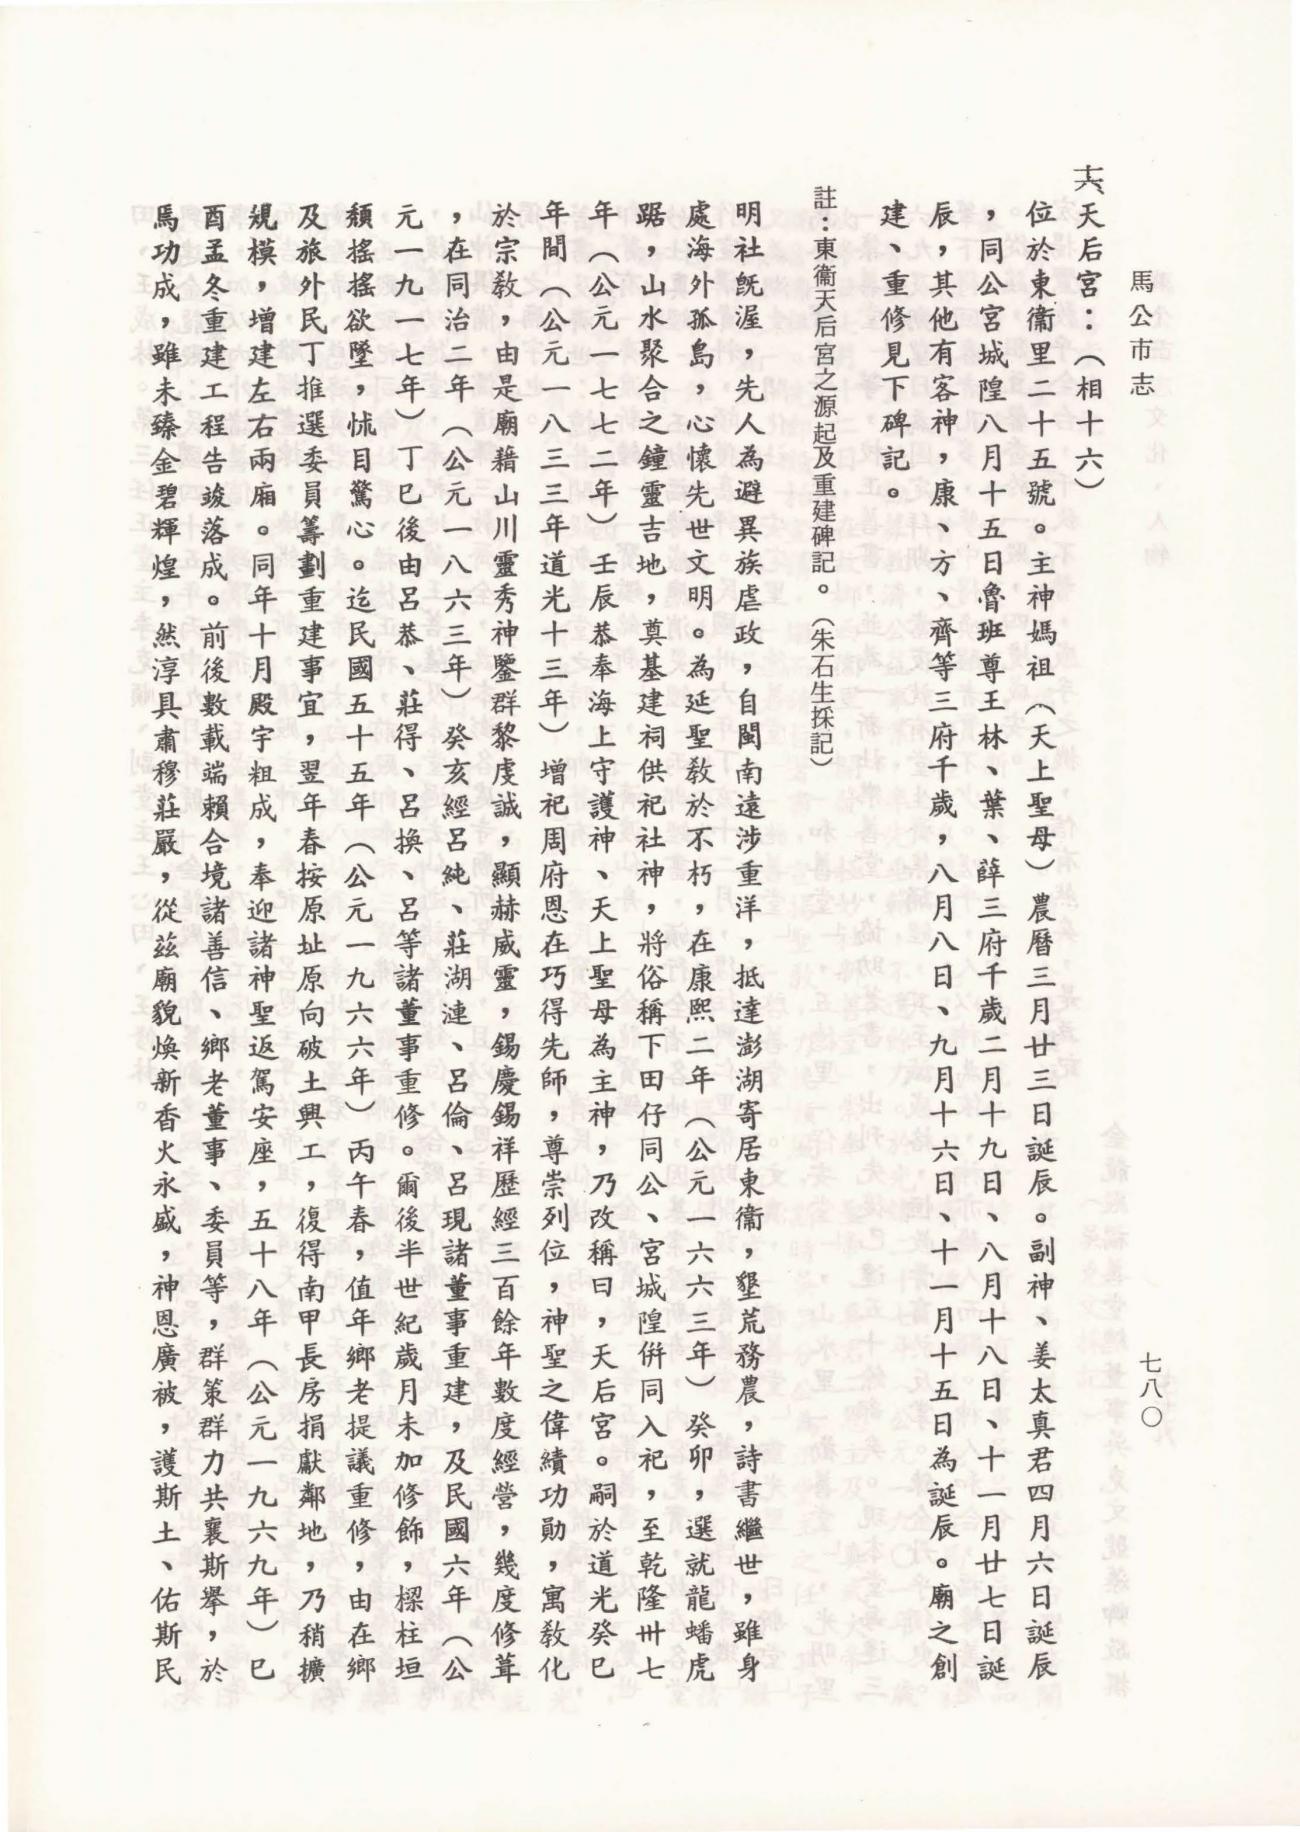 馬公市志
七八〇
六、天后宮：（相十六）
位於東衞里二十五號。主神媽祖（天上聖母）農曆三月廿三日誕辰。副神、姜太真君四月六日誕辰
，同公宮城隍八月十五日魯班尊王林、葉、薛三府千歲二月十九日、八月十八日、十一月廿七日誕
辰，其他有客神，康、方、齊等三府千歲，八月八日、九月十六日、十一月十五日為誕辰。廟之創
建、重修見下碑記。
註：東衞天后宮之源起及重建碑記。（朱石生採記）
明社旣渥，先人為避異族虐政，自閩南遠涉重洋，抵達澎湖寄居東衞，墾荒務農，詩書繼世，雖身
處海外孤島，心懷先世文明。為延聖教於不朽，在康熙二年（公元一六六三年）癸卯，選就龍蟠虎
踞，山水聚合之鐘靈吉地，奠基建祠供祀社神，將俗稱下田仔同公、宮城隍併同入祀，至乾隆卅七
年（公元一七七二年）壬辰恭奉海上守護神、天上聖母為主神，乃改稱曰，天后宮。嗣於道光癸巳
年間（公元一八三三年道光十三年）增祀周府恩在巧得先師，尊崇列位，神聖之偉績功勛，寓教化
於宗教，由是廟藉山川靈秀神鑒群黎虔誠，顯赫威靈，錫慶錫祥歷經三百餘年數度經營，幾度修葺
，在同治二年（公元一八六三年）癸亥經呂純、莊湖漣、呂倫、呂現諸董事重建，及民國六年（公
元一九一七年）丁巳後由呂恭、莊得、呂換、呂等諸董事重修。爾後半世紀歲月未加修飾，樑柱垣
頹搖搖欲墜，怵目驚心。迄民國五十五年（公元一九六六年）丙午春，值年鄉老提議重修，由在鄉
及旅外民丁推選委員籌劃重建事宜，翌年春按原址原向破土興工，復得南甲長房捐獻鄰地，乃稍擴
規模，增建左右兩廂。同年十月殿宇粗成，奉迎諸神聖返駕安座，五十八年（公元一九六九年）巳
酉孟冬重建工程告竣落成。前後數載端賴合境諸善信、鄉老董事、委員等，群策群力共襄斯舉，於
馬功成，雖未臻金碧輝煌，然淳具肅穆莊嚴，從茲廟貌煥新香火永盛，神恩廣被，護斯土、佑斯民